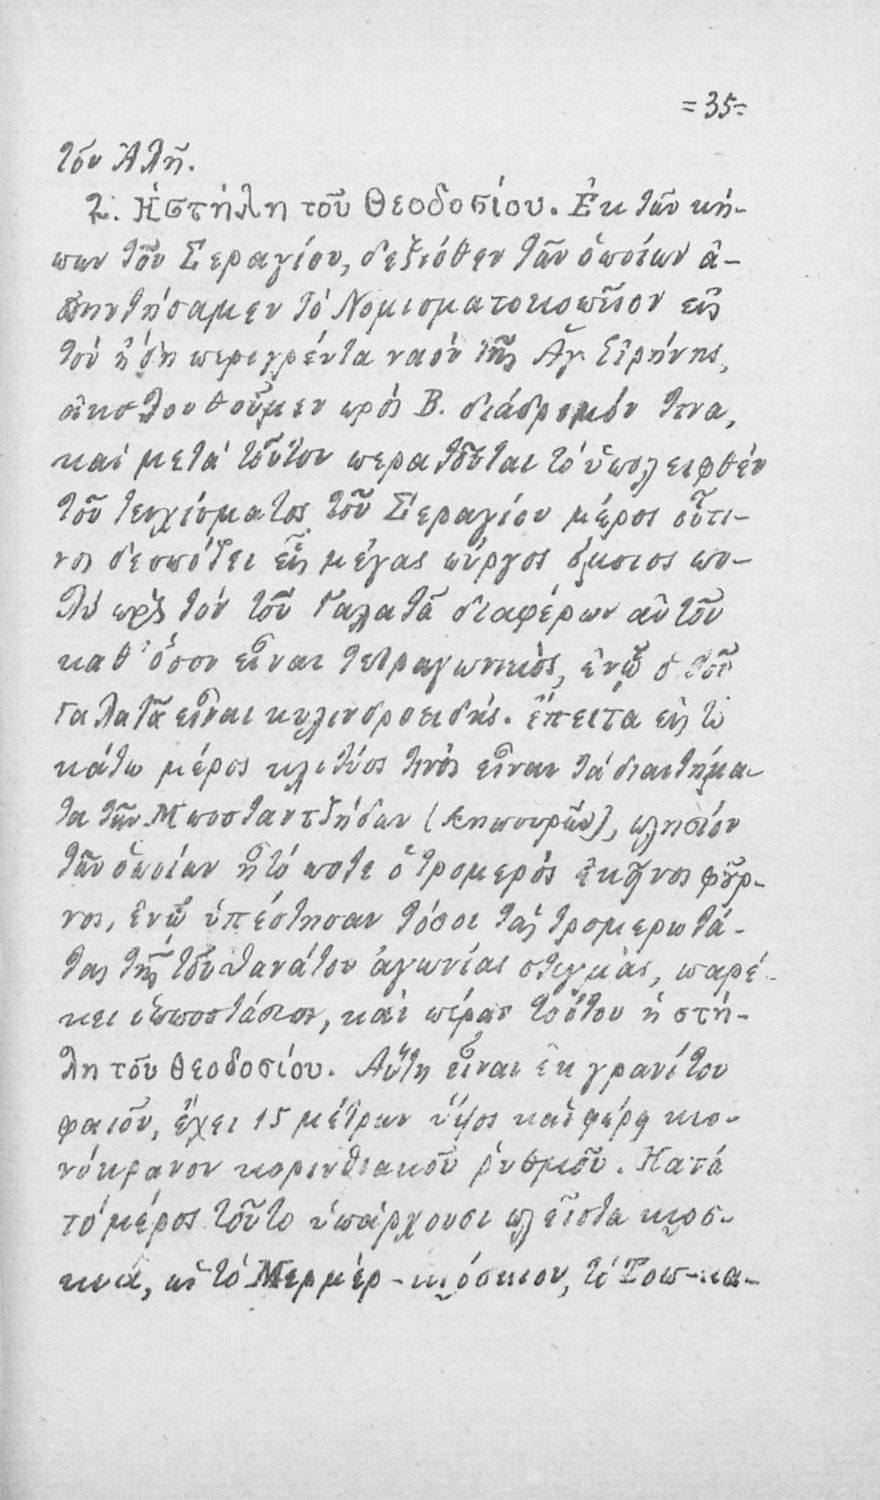 =35=
τοῦ Ἀλῆ.
2. Ἡ στήλη τοῦ Θεοδοσίου. Ἐκ τῶν κή-
πων τοῦ Σεραγίου, δεξιόθεν τῶν ὁποίων ἀ-
πηντήσαμεν τὸ Νομισματοκοπεῖον εἰς
τὸν ἤδη περιγρ. ναὸν τῆς Ἁγ. Εἰρήνης,
ἀκολουθοῦμεν πρὸς Β. διάδρομόν τινα,
καὶ μετὰ τοῦτον περατοῦται τὸ ὑπολειφθὲν
τοῦ τειχίσματος τοῦ Σεραγίου μέρος οὗτι-
νος δεσπόζει εἷς μέγας πύργος ὅμοιος πο-
λὺ πρὸς τὸν τοῦ Γαλατᾶ διαφέρων αὐτοῦ
καθ' ὅσον εἶναι τετραγωνικὸς, ἐνῷ ὁ τοῦ
Γαλατᾶ εἶναι κυλινδροειδής. Ἔπειτα εἰς τὸ
κάτω μέρος κλιτύος τινὸς εἶναι τὰ διαιτήμα-
τα τῶν Μποσταντζήδων (κηπουρῶν), πλησίον
τῶν ὁποίων ἦτό ποτε ὁ τρομερὸς ἐκεῖνος φοῦρ-
νος, ἐνῷ ὑπέστησαν τόσοι τὰς τρομερωτά-
τας τῆς τοῦ θανάτου ἀγωνίας στιγμὰς, παρέ-
κει ἱπποστάσιον, καὶ πέραν τούτου ἡ στή-
λη τοῦ Θεοδοσίου. Αὕτη εἶναι ἐκ γρανίτου
φαιοῦ, ἔχει 15 μέτρων ὕψος καὶ φέρει κιο-
νόκρανον κορινθιακοῦ ῥυθμοῦ. Κατὰ
τὸ μέρος τοῦτο ὑπάρχουσι πλεῖστα κιόσ-
κια, ὡς τὸ Μερμέρ-κιόσκιον, τὸ Τοπ-κα-